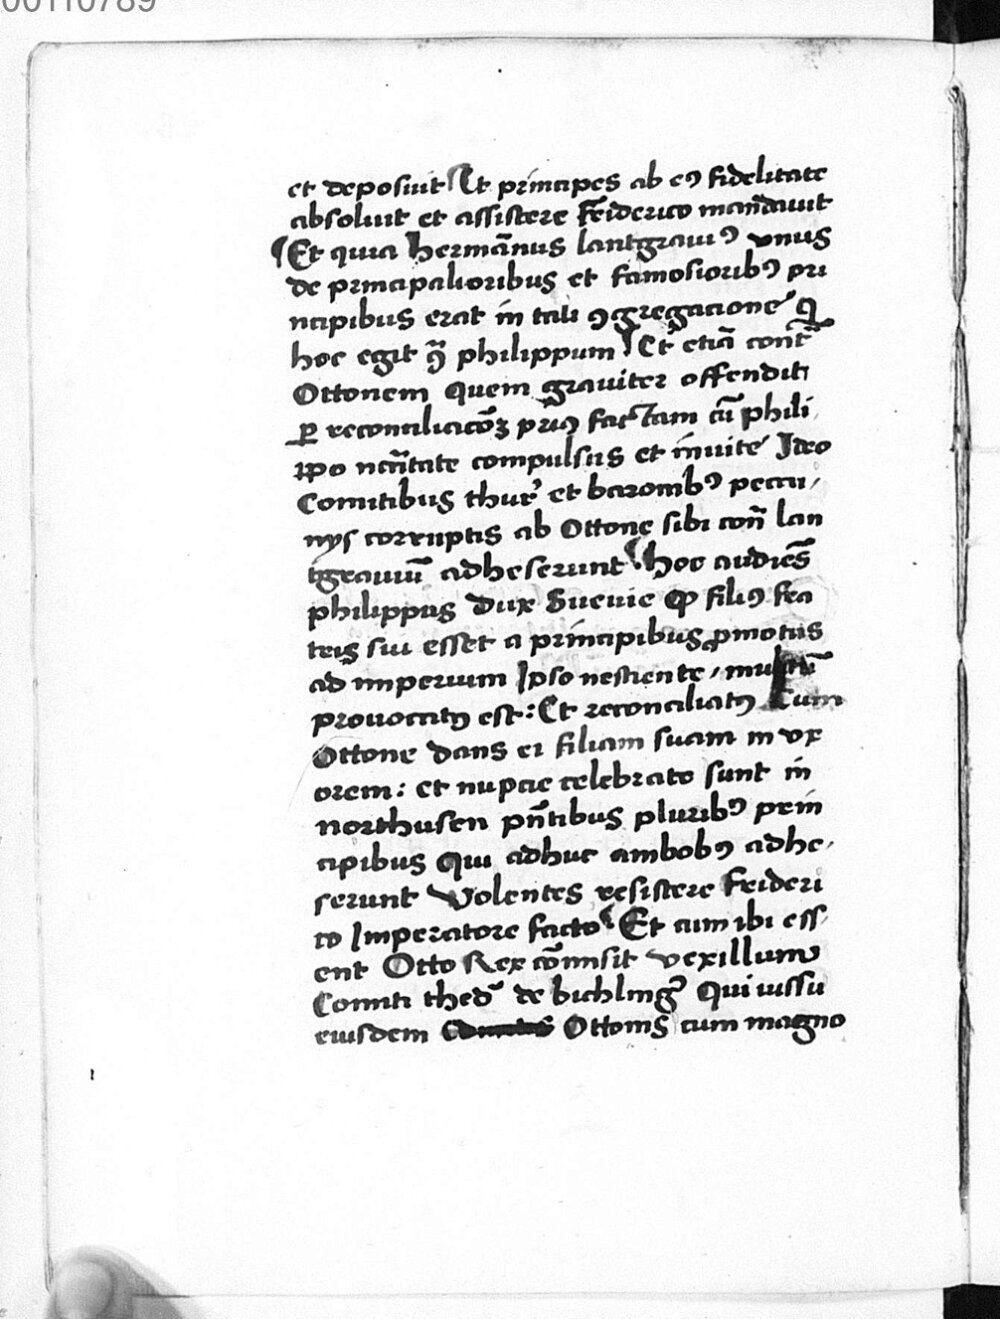 00110789
et deposuit Et principes ab eꝰ fidelitate
absoluit et assistere fr̄iderico man̄dauit
Et quia herman̄us lantgrauiꝰ vnus
de principalioribus et famosioribꝰ pri
ncipibus erat in tali ꝯgregacione Q̇
hoc egit ꝯ̄ philippum Et etiā contͣ
Ottonem Quem grauiter offendit
ꝑ reconciliacōꝫ priꝰ factam cū phili
ppo nec̄itate compulsus et inuite Ideo
Comitibus thurꝰ et baronibꝰ pecu
nijs corruptis ab Ottone sibi con̄ lan
tgrauiū adheserunt hoc audiēs
philippus Dux Sueuie Ꝙ filiꝰ fra
tris sui esset a principibus ꝓmotus
ad imperium Ipso nesciente multū
prouocatꝰ est: Et reconciliatꝰ Cum
Ottone dans ei filiam suam in vx
orem: et nupcie celebrate sunt in
northusen pn̄tibus pluribꝰ prin
cipibus Qui adhuc ambobꝰ adhe
serunt Volentes resistere frideri
co Imperatore facto Et cum ibi ess
ent Otto Rex cōmisit vexillum
Comiti thedꝰ de bichlingꝰ Qui iussu
eiusdem Ottonis cum magno